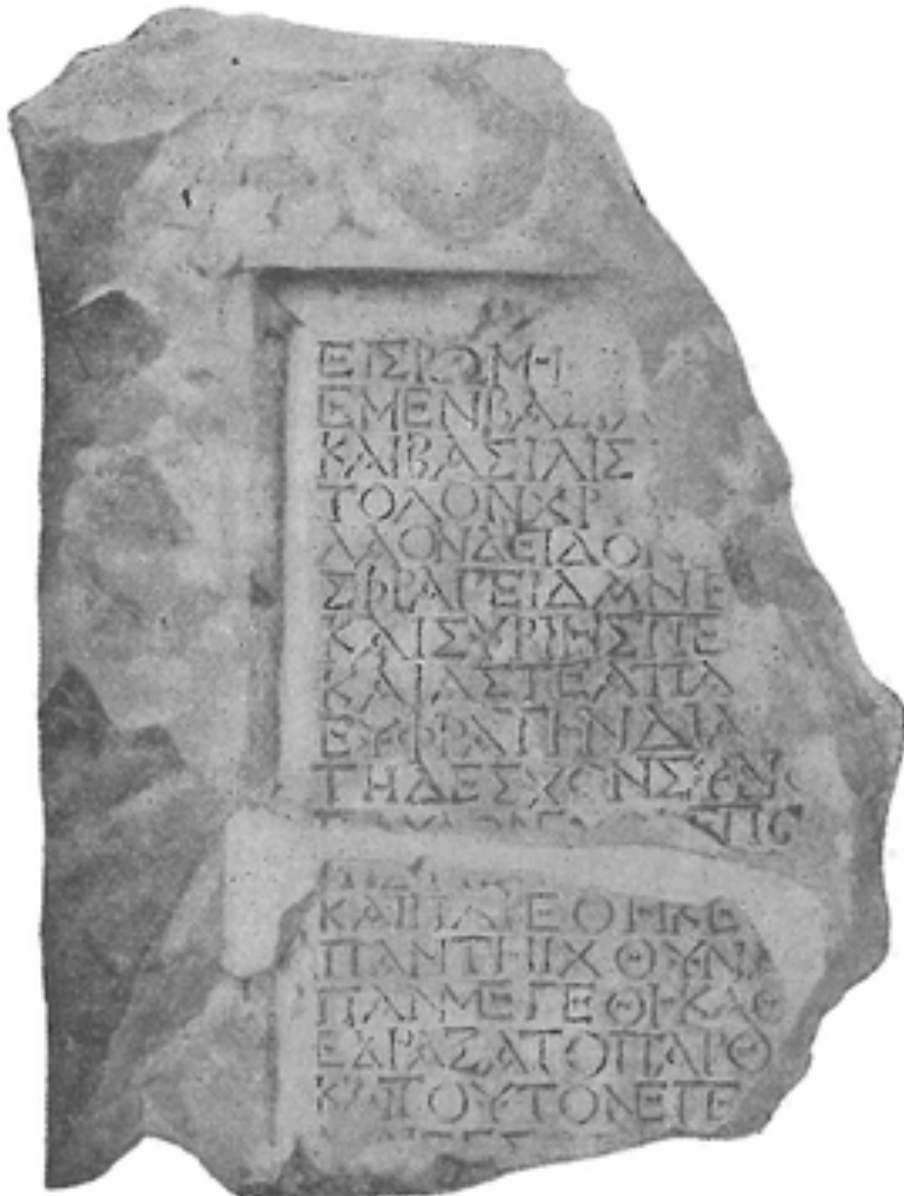 ΕΙΣΡΩΜΗ
ΕΜΕΝΒΑΣΙΛ
ΚΑΙΒΑΣΙΛΙΣ
ΤΟΛΟΝΧΡ
ΛΑΟΝΔΕΙΔΟΝ
ΣΦΡΑΓΕΙΔΑΝΕ
ΚΑΙΣΥΡΙΗΣΠΕ
ΚΑΙΑΣΤΕΑΠΑ
ΕΥΦΡΑΤΗΝΔΙΑ
ΤΗΔΕΣΧΟΝΣΥΝΟ
ΕΠΟ
ΚΑΙΠΑΡΕΘΗΚΕ
ΠΑΝΤΗΙΧΘΥΝΑ
ΠΑΝΜΕΓΕΘΗΚΑΘ
ΕΔΡΑΞΑΤΟΠΑΡΘ
ΚΑΙΤΟΥΤΟΝΕΠΕ